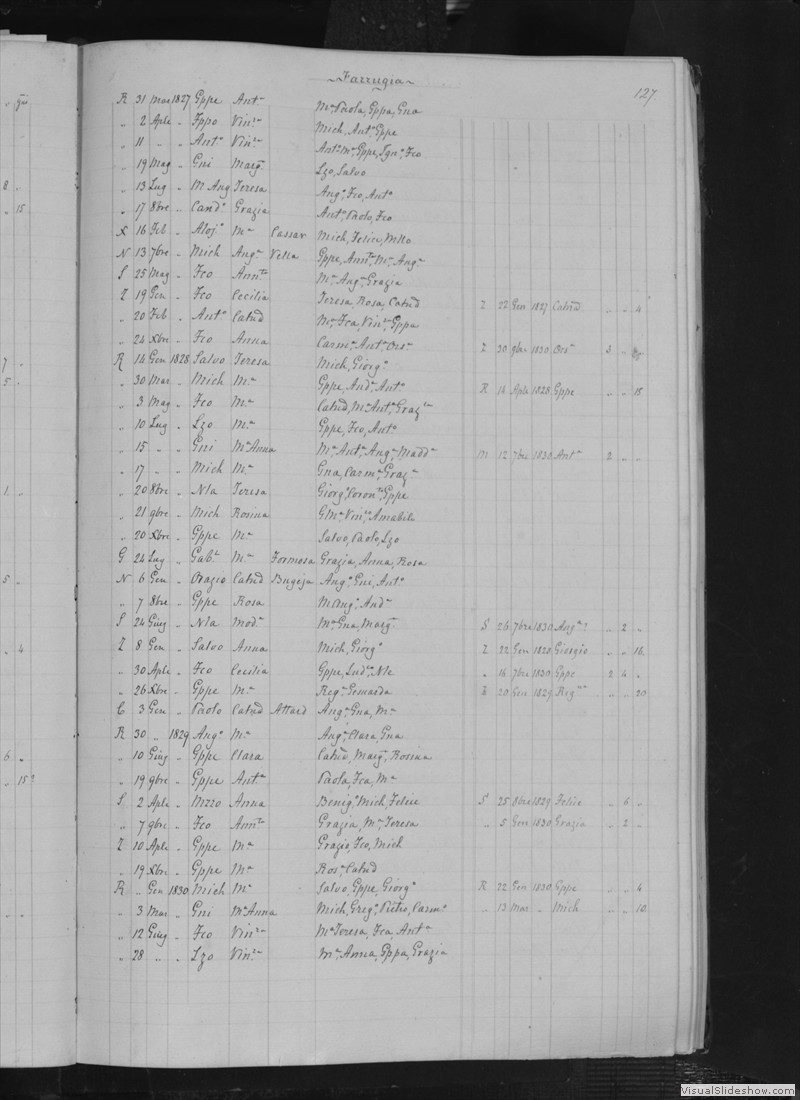 Farrugia
127
R 31 Mar 1827 Gppe Anta Ma Paola, Gppa, Gna
" 2 Aple " Fppo Vinza Mich, Anto, Gppe
" 11 " " Anto Vinza Anto Ma, Gppe, Igno, Fco
" 19 Mag " Gni Margta Lzo, Salvo
" 13 Lug " M Ang Teresa Ango, Fco, Anto
" 17 8bre " Cando Grazia Anto, Paolo, Fco
X 16 Feb " Alojo Ma Cassar Mich, Felice,
N 13 7bre " Mich Anga Vella Gppe, Annta, Ma, Anga
S 25 Mag " Fco Annta Ma Anga, Grazia
Z 19 Gen " Fco Cecilia Teresa, Rosa, Catnd Z 22 Gen 1827 Catnd " " 4
" 20 Feb " Anto Catnd Ma, Fca, Vinza, Gppa
" 24 Xbre " Fco Anna Carmo, Anto, Orso Z 30 9bre 1830 Orso 3 "
R 14 Gen 1828 Salvo Teresa Mich, Giorgo
" 30 Mar " Mich Ma Gppe, Anda, Anto R 14 Aple 1828 Gppe " " 15
" 3 Mag " Fco Ma Catnd, Ma Anta, Graza
" 10 Lug " Lzo Ma Gppe, Fco, Anto
" 15 " " Gni Ma Anna Ma Anta, Anga, Madda M 12 7bre 1830 Anta 2 " "
" 17 " " Mich Ma Gna, Carma, Graza
" 20 8bre " Nla Teresa Giorgo, Corona, Gppe
" 21 9bre " Mich Rosina GMa Vinzo, Amabile
" 20 Xbre " Gppe Ma Salvo, Paolo, Lzo
G 24 Lug " Gabl Ma Formosa Grazia, Anna, Rosa
N 6 Gen " Orazio Catnd Bugeja Ango, Gni, Anto
" 7 8bre " Gppe Rosa M Ango, Anda
S 24 Giug " Nla Moda Ma Gna, Margta S 26 7bre 1830 Anga? " 2 "
Z 8 Gen " Salvo Anna Mich, Giorgo Z 22 Gen 1828 Giorgio " " 16
" 30 Aple " Fco Cecilia Gppe, Ludo, Nle " 16 7bre 1830 Gppe 2 4 "
" 26 Xbre " Gppe Ma Rega, Z 20 Gen 1829 Rega " " 20
C 3 Gen " Paolo Catnd Attard Anga, Gna, Ma
R 30 " 1829 Ango Ma Anga, Clara, Gna
" 10 Giug " Gppe Clara Catnd, Margta, Rosina
" 19 9bre " Gppe Anta Paola, Fca, Ma
S 2 Aple " Mzzo Anna Benigo, Mich, Felice S 25 8bre 1829 Felice " 6 "
" 7 9bre " Fco Annta Grazia, Ma, Teresa " 5 Gen 1830 Grazia " 2 "
Z 10 Aple " Gppe Ma Grazio, Fco, Mich
" 19 Xbre " Gppe Ma Rosa, Catnd
R " Gen 1830 Mich Ma Salvo, Gppe, Giorgo R 22 Gen 1830 Gppe " " 4
" 3 Mar " Gni Ma Anna Mich, Grego, Pietro, Carmo " 13 Mar " Mich " " 10
" 12 Giug " Fco Vinza Ma Teresa, Fca, Anta
" 28 " " Lzo Vinza Ma Anna, Gppa, Grazia
VisualSlideshow.com